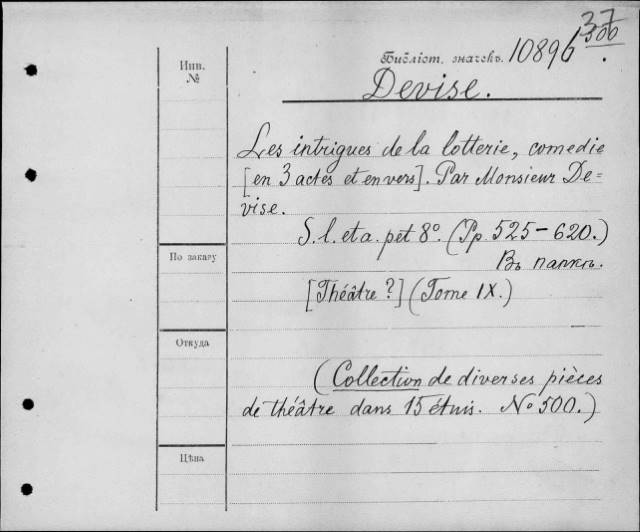 37
500
Инв.
№
Библіот. значекъ. 10896
Devise.
Les intrigues de la lotterie, comedie
[en 3 actes et en vers]. Par Monsieur De=
vise.
S. l. et a. pet 8°. (Pp. 525-620.)
Въ папкѣ.
По заказу
[Théâtre?] (Tome IX.)
Откуда
(Collection de diverses pièces
de théâtre dans 15 étuis. No 500.)
Цѣна